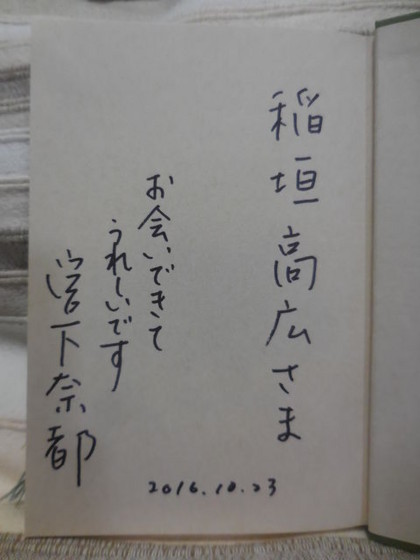 稲垣高広さま
お会いできて
うれしいです
宮下奈都
2016.10.23